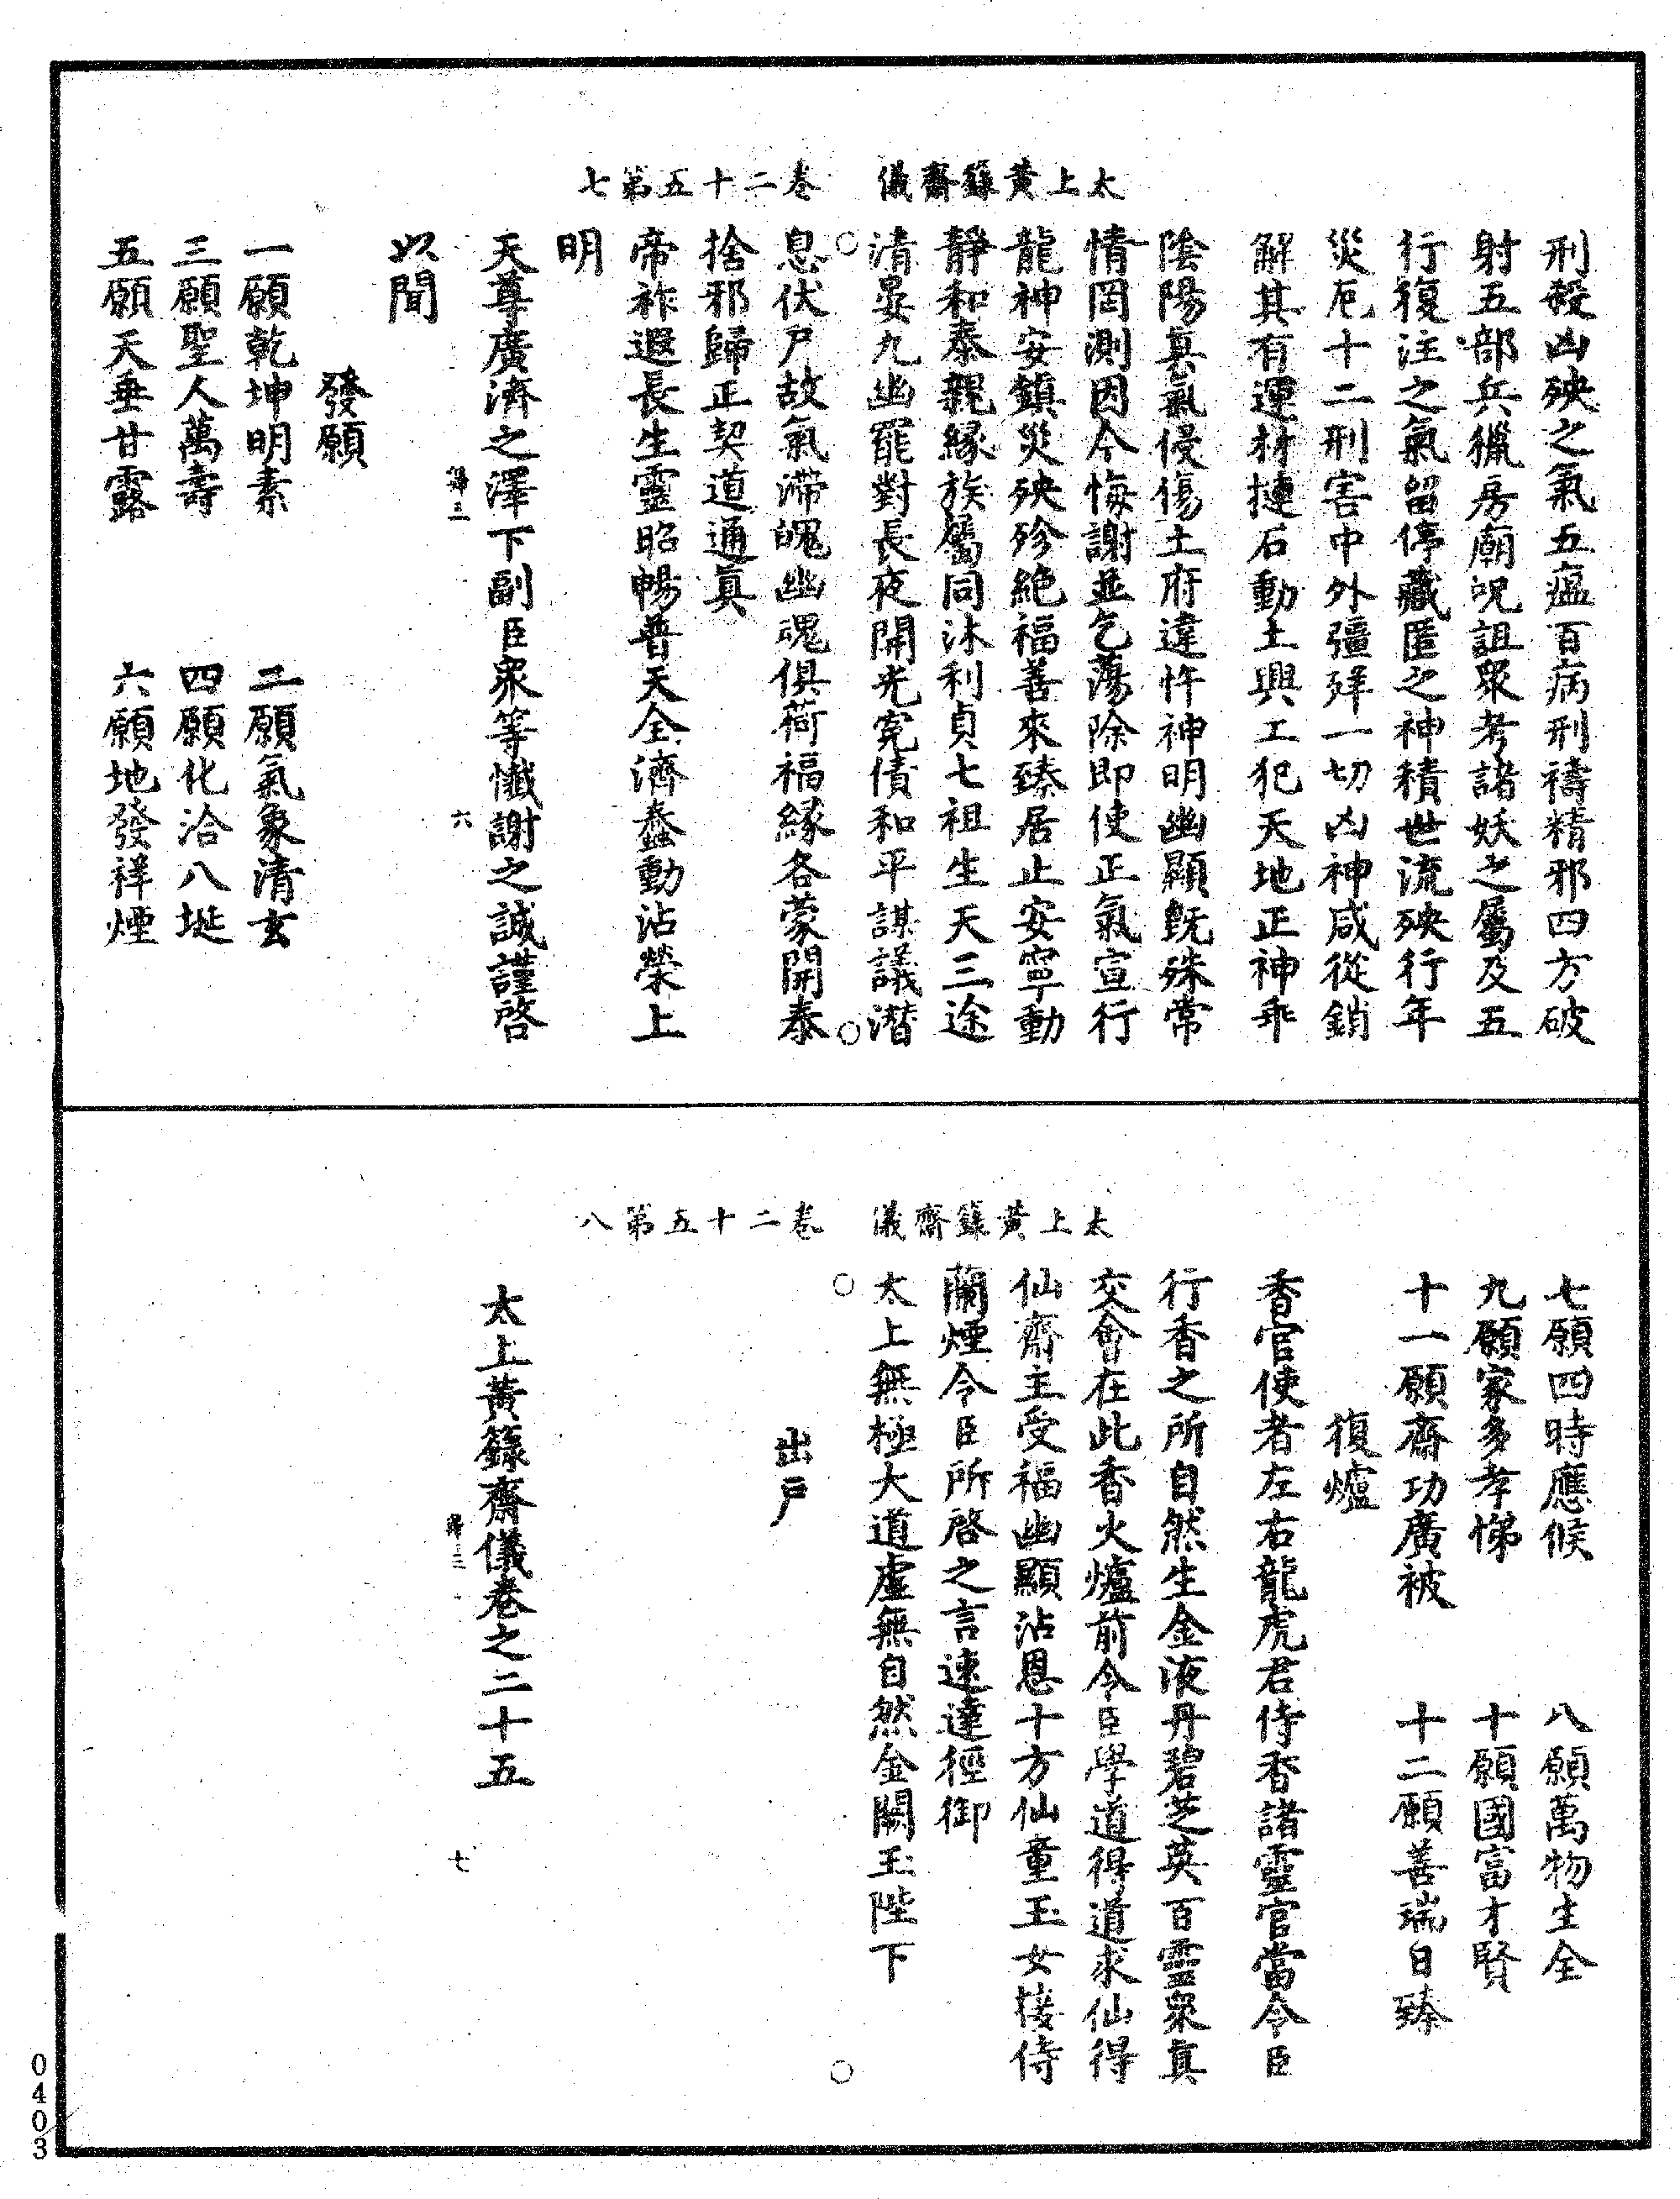 太上黃籙齋儀　卷二十五第七
刑殺凶殃之氣五瘟百病刑禱精邪四方破
射五部兵獵房廟呪詛眾考諸妖之屬及五
行復注之氣留停藏匿之神積世流殃行年
災厄十二刑害中外彊殍一切凶神咸從銷
解其有運材摙石動土興工犯天地正神乖
陰陽真氣侵傷土府違忤神明幽顯既殊常
情罔測因今悔謝並乞蕩除即使正氣宣行
龍神安鎮災殃殄絕福善來臻居止安寧動
靜和泰親緣族屬同沐利貞七祖生天三途
清晏九幽罷對長夜開光冤債和平謀議潛
息伏尸故氣滯魄幽魂俱荷福緣各蒙開泰
捨邪歸正契道通真
帝祚遐長生靈昭暢普天全濟蠢動沾榮上
明
天尊廣濟之澤下副臣眾等懺謝之誠謹啓
歸三　六
以聞
發願
一願乾坤明素　二願氣象清玄
三願聖人萬壽　四願化洽八埏
五願天垂甘露　六願地發祥煙
太上黃籙齋儀　卷二十五第八
七願四時應候　八願萬物生全
九願家多孝悌　十願國富才賢
十一願齋功廣被　十二願善瑞日臻
復爐
香官使者左右龍虎君侍香諸靈官當令臣
行香之所自然生金液丹碧芝英百靈眾真
交會在此香火爐前令臣學道得道求仙得
仙齋主受福幽顯沾恩十方仙童玉女接侍
蘭煙令臣所啓之言速達徑御
太上無極大道虛無自然金闕玉陛下
出戶
太上黃籙齋儀卷之二十五
歸三　七
0403